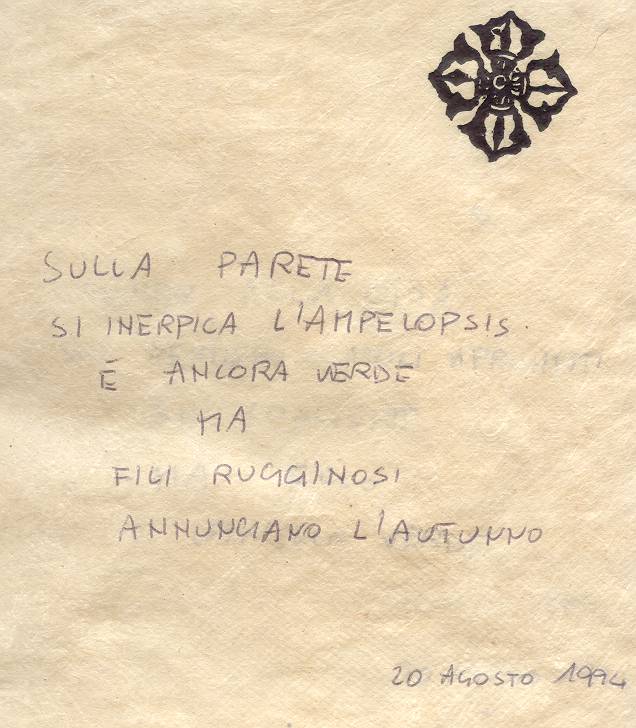 SULLA PARETE
SI INERPICA L'AMPELOPSIS.
É ANCORA VERDE
MA
FILI RUGGINOSI
ANNUNCIANO L'AUTUNNO
20 AGOSTO 1994